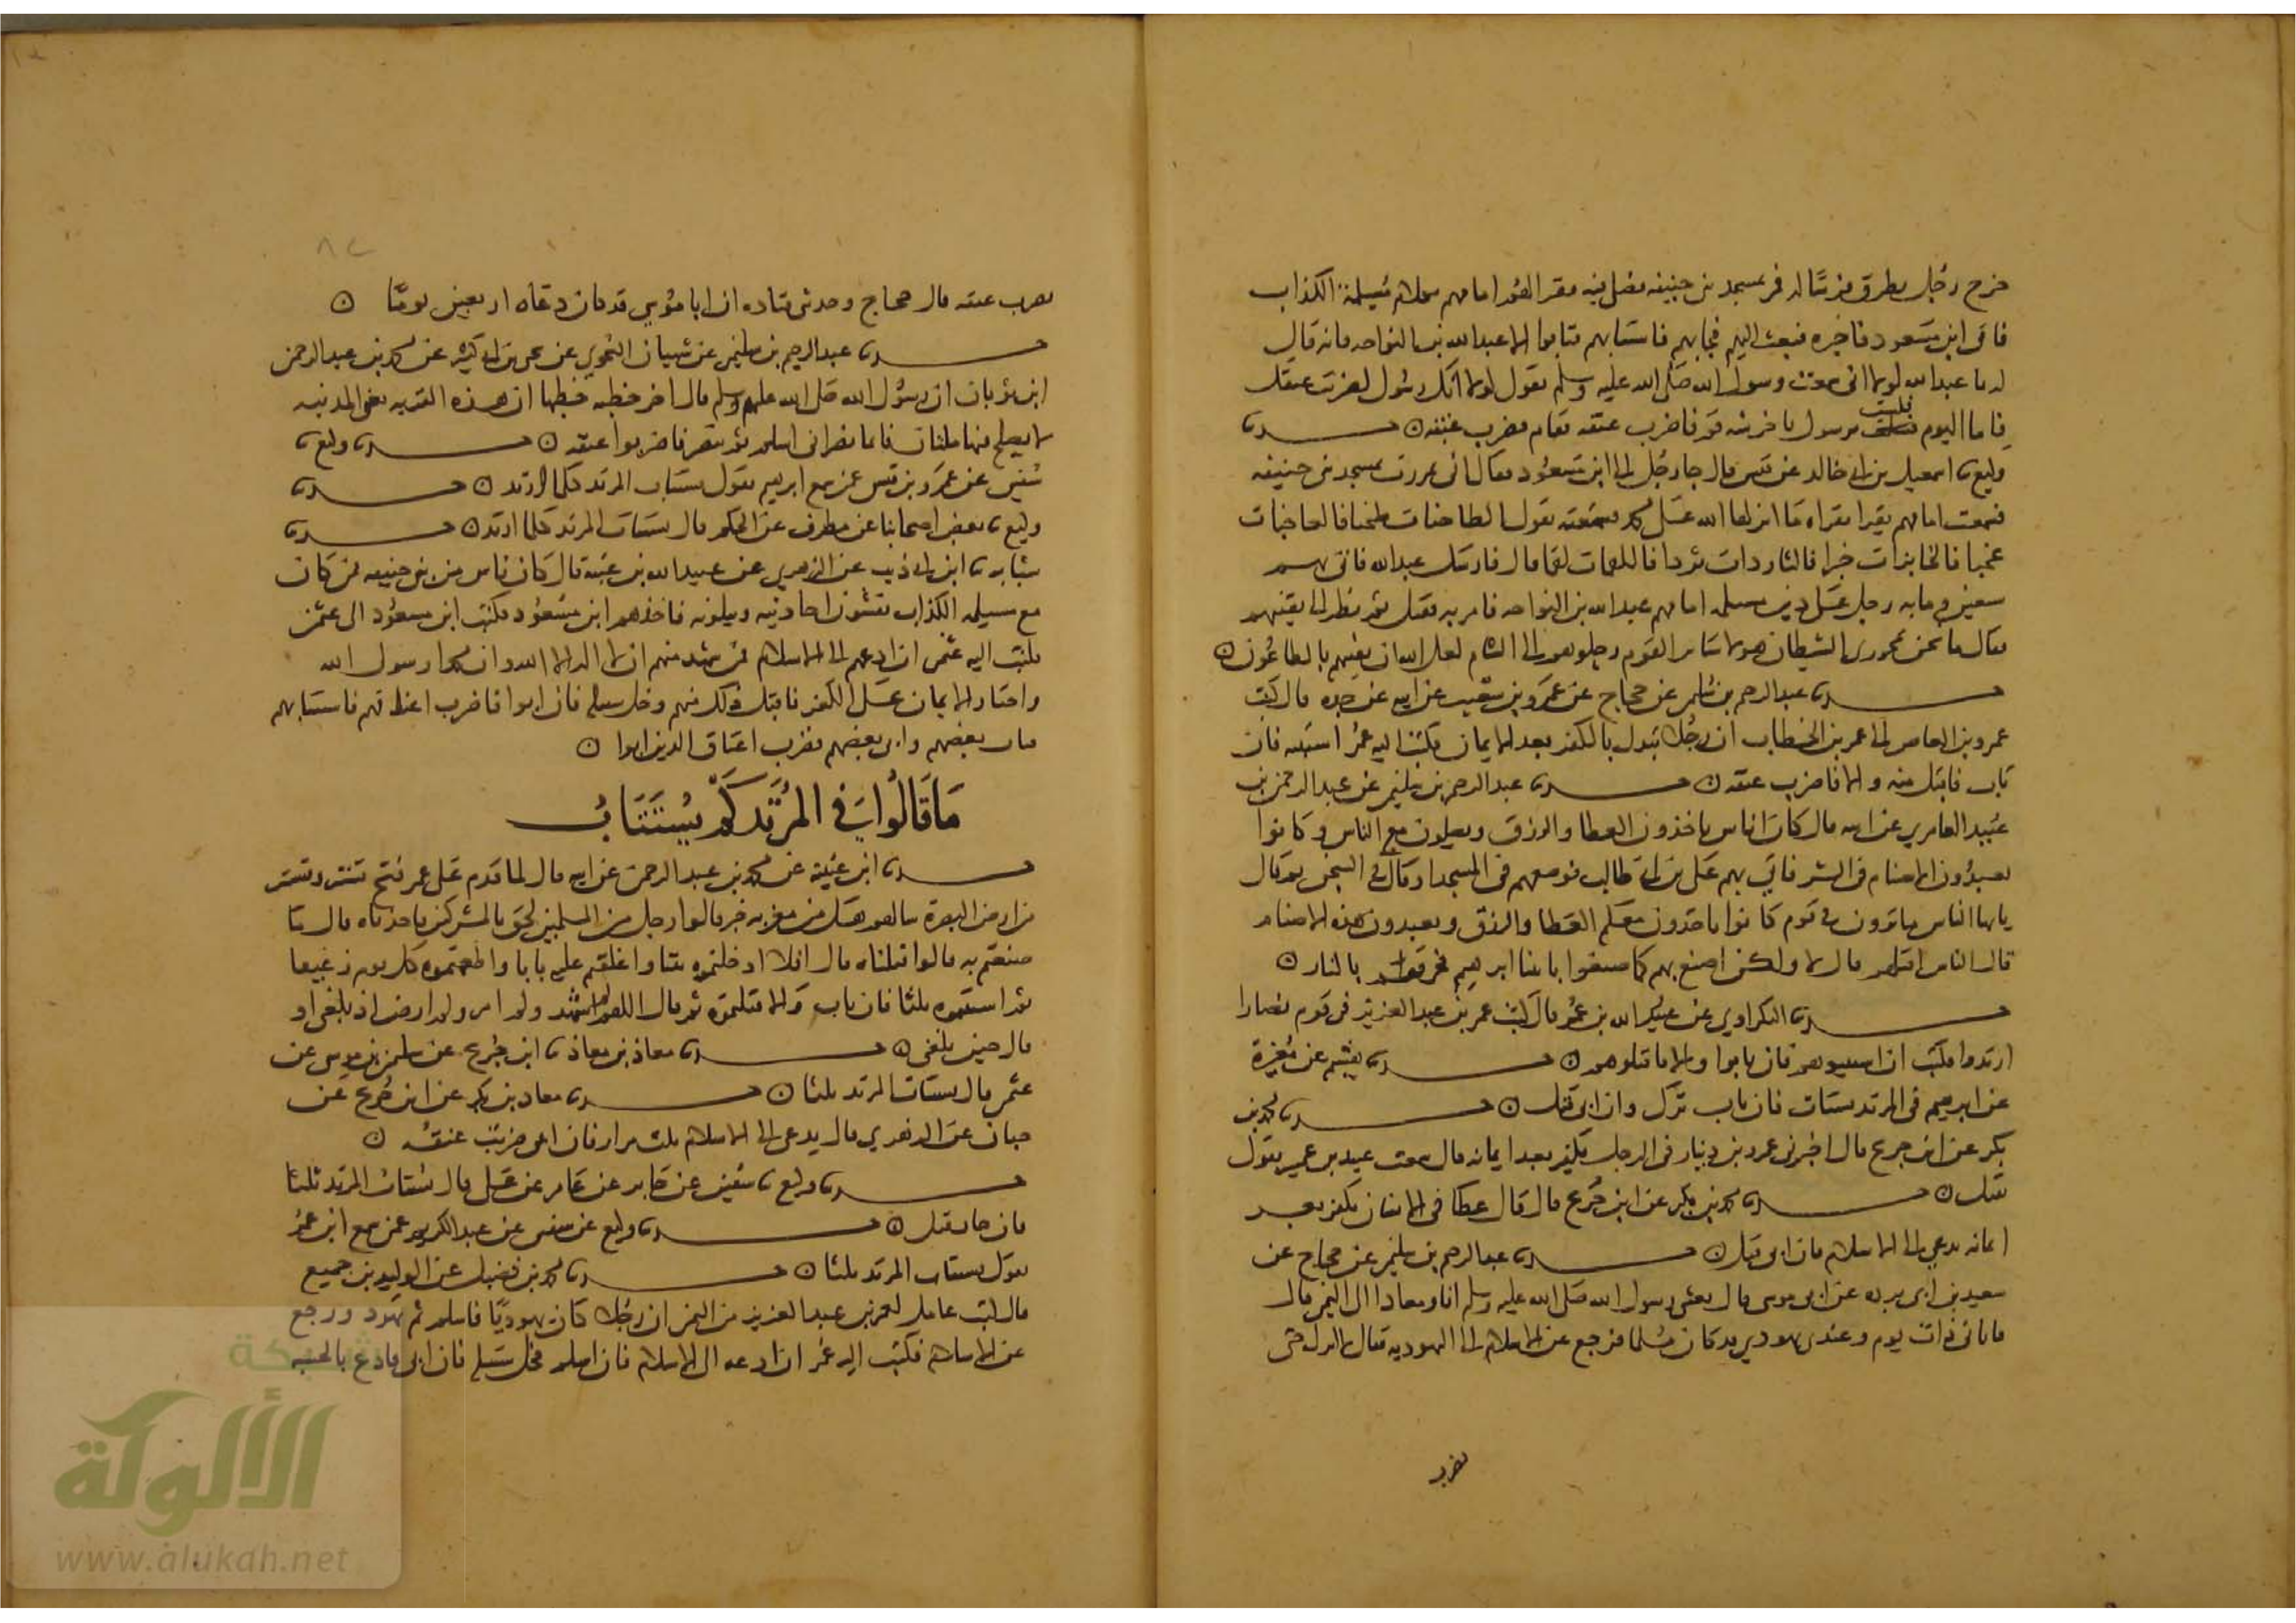 خرج رجل يطرق فرسا له فمر بمسجد بني حنيفة فصلى فيه فقرأ لهم امامهم بكلام مسيلمة الكذاب
فاتى ابن مسعود فاخبره فبعث اليهم فجاء بهم فاستتابهم فتابوا الا عبد الله بن النواحه فانه قال
له يا عبد الله لولا انى سمعت رسول الله صلى الله عليه وسلم يقول لولا انك رسول لضربت عنقك
فاما اليوم فلست برسول يا خرشه قم فاضرب عنقه فقام فضرب عنقه ن حدثنا
وكيع نا اسمعيل بن ابى خالد عن قيس قال جا رجل الى ابن مسعود فقال انى مررت بمسجد بنى حنيفه
فسمعت امامهم يقرا بقراه ما انزلها الله على محمد فسمعته يقول الطاحنات طحنا فالعاجنات
عجنا فالخابزات خبزا فالثاردات ثردا فاللاقمات لقما قال فارسل عبد الله فاتى بهم
سبعين ومايه رجل على دين مسيلمه امامهم عبد الله بن النواحه فامر به فقتل ثم نظر الى بقيتهم
فقال ما نحن بمحرزى الشيطان هولا سائر القوم رحلوهم الى الشام لعل الله ان يفنيهم بالطاعون ن
حدثنا عبد الرحيم بن سليمن عن حجاج عن عمرو بن شعيب عن ابيه عن جده قال كتب
عمرو بن العاص الى عمر بن الخطاب ان رجلا تبدل بالكفر بعد الايمان فكتب اليه عمر استتبه فان
تاب فاقبل منه والا فاضرب عنقه ن حدثنا عبد الرحيم بن سليمن عن عبد الرحمن بن
عبيد العامري عن ابيه قال كان اناس ياخذون العطا والرزق ويصلون مع الناس وكانوا
يعبدون الاصنام فى السر فاتى بهم على بن ابى طالب فوضعهم فى المسجد او قال فى السجن ثم قال
يايها الناس ما ترون فى قوم كانوا ياخذون معكم العطا والرزق ويعبدون هذه الاصنام
قال الناس اقتلهم قال لا ولكن اصنع بهم كما صنعوا بابينا ابرهيم فحرقهم بالنار ن
حدثنا البكراوي عن عبيد الله بن عمر قال كتب عمر بن عبد العزيز فى قوم نصارا
ارتدوا فكتب ان استتيبوهم فان تابوا والا فاقتلوهم ن حدثنا هشيم عن مغيرة
عن ابرهيم فى المرتد يستتاب فان تاب ترك وان ابى قتل ن حدثنا محمد بن
بكر عن ابن جريج قال اخبرنى عمرو بن دينار فى الرجل يكفر بعد ايمانه قال سمعت عبيد بن عمير يقول
يقتل ن حدثنا محمد بن بكر عن ابن جريج قال قال عطا فى الانسان يكفر بعد
ايمانه يدعى الى الاسلام فان ابى قتل ن حدثنا عبد الرحيم بن سليمن عن حجاج عن
سعيد بن ابى برده عن ابى موسى قال بعثنى رسول الله صلى الله عليه وسلم انا ومعاذا الى اليمن قال
فاتانى ذات يوم وعندى يهودي قد كان مسلما فرجع عن الاسلام الى اليهوديه فقال لا انزل حتى
تضرب
٨٢
تضرب عنقه قال حجاج وحدثنى قتاده ان ابا موسى قد كان دعاه اربعين يوما ن
حدثنا عبد الرحيم بن سليمن عن شيبان النحوي عن يحيى بن ابى كثير عن محمد بن عبد الرحمن
ابن ثوبان ان رسول الله صلى الله عليه وسلم قال اخر خطبه خطبها ان هذه القريه يعنى المدينه
لا يصلح فيها ملتان فايما نصرانى اسلم ثم تنصر فاضربوا عنقه ن حدثنا وكيع نا
سفين عن عمرو بن قيس عمن سمع ابرهيم يقول يستتاب المرتد كلما ارتد ن حدثنا
وكيع نا بعض اصحابنا عن مطرف عن الحكم قال يستتاب المرتد كلما ارتد ن حدثنا
شبابه نا ابن ابى ذيب عن الزهري عن عبيد الله بن عتبة قال كان ناس من بنى حنيفه ممن كان
مع مسيلمه الكذاب يفشون احاديثه ويتلونه فاخذهم ابن مسعود فكتب ابن مسعود الى عثمن
فكتب اليه عثمن ان ادعهم الى الاسلام فمن شهد منهم ان لا اله الا الله وان محمدا رسول الله
واختار الايمان على الكفر فاقبل ذلك منهم وخل سبيلهم فان ابوا فاضرب اعناقهم فاستتابهم
فتاب بعضهم وابى بعضهم فضرب اعناق الذين ابوا ن
مَا قَالُوا فى المُرتَد كَمْ يُستَتَابُ
حدثنا ابن عيينة عن محمد بن عبد الرحمن عن ابيه قال لما قدم على عمر فتح تستر وتستر
من ارض البصرة سالهم هل من مغربه خبر قالوا رجل من المسلمين لحق بالمشركين فاخذناه قال ما
صنعتم به قالوا قتلناه قال افلا ادخلتموه بيتا واغلقتم عليه بابا واطعمتموه كل يوم رغيفا
ثم استتبتموه ثلثا فان تاب والا قتلتموه ثم قال اللهم لم اشهد ولم امر ولم ارض اذ بلغنى او
قال حين بلغنى ن حدثنا معاذ بن معاذ نا ابن جريج عن سليمن بن موسى عن
عثمن قال يستتاب المرتد ثلثا ن حدثنا معاذ بن بكر عن ابن جريج عن
حبان عن الزهري قال يدعى الى الاسلام ثلث مرار فان ابى ضربت عنقه ن
حدثنا وكيع نا سفين عن جابر عن عامر عن على قال يستتاب المرتد ثلثا
فان عاد قتل ن حدثنا وكيع عن سفين عن عبد الكريم عمن سمع ابن عمر
يقول يستتاب المرتد ثلثا ن حدثنا محمد بن فضيل عن الوليد بن جميع
قال كتب عامل لعمر بن عبد العزيز من اليمن ان رجلا كان يهوديا فاسلم ثم تهود ورجع
عن الاسلام فكتب اليه عمر ان ادعه الى الاسلام فان اسلم فخل سبيله فان ابى فادع بالخشبه
شبكة
الألوكة
www.alukah.net